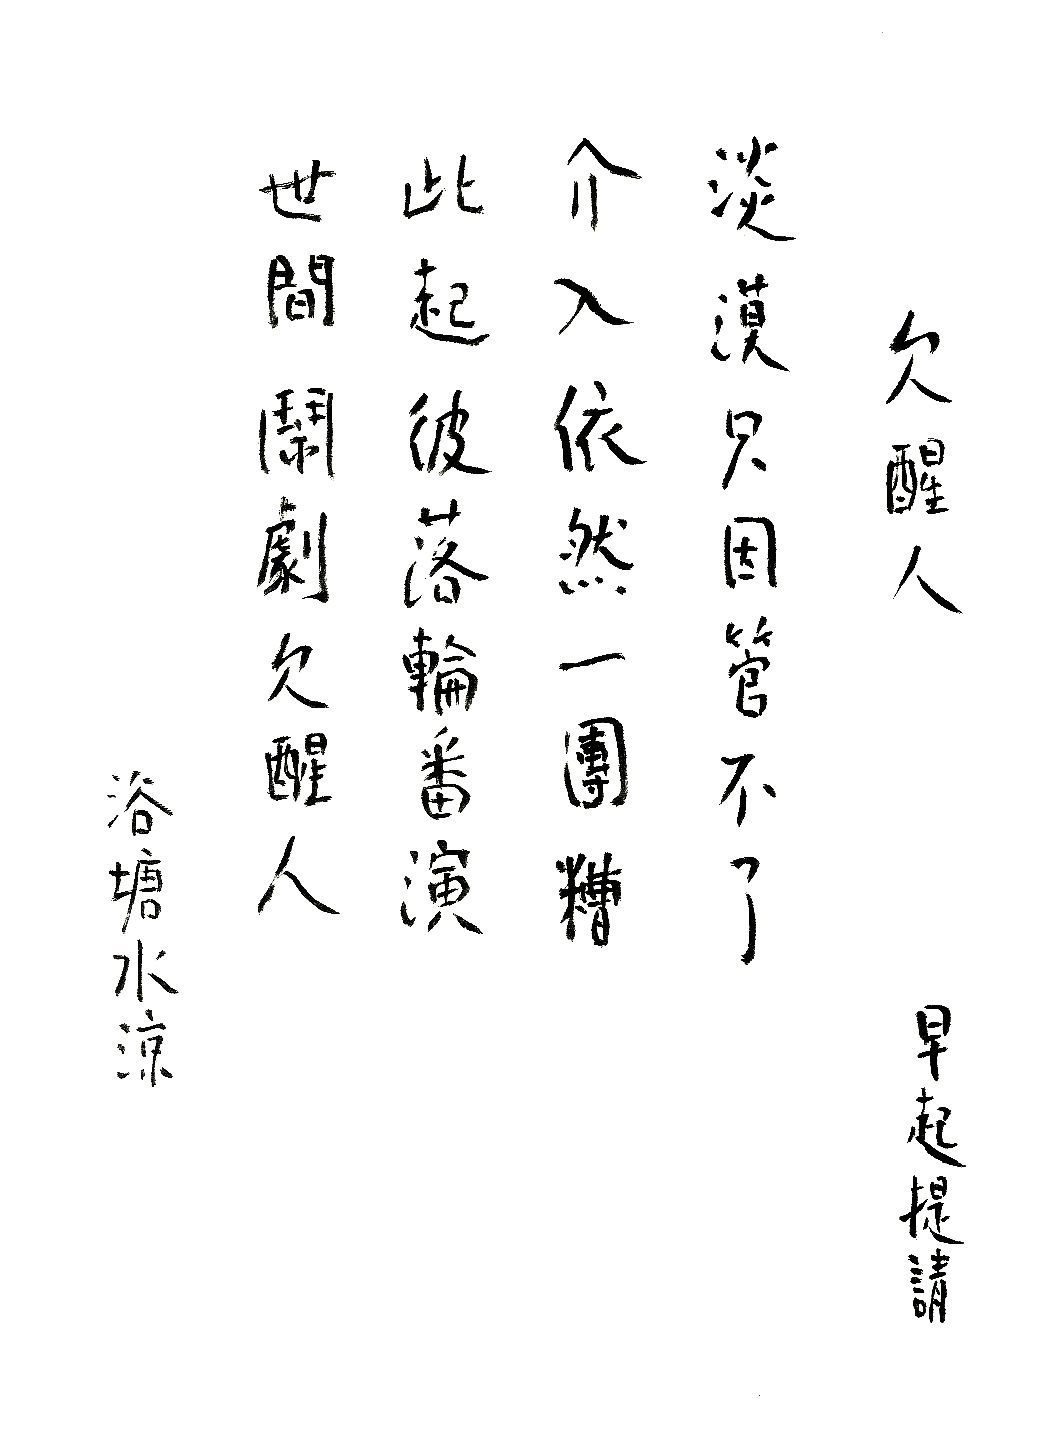 欠醒人
早起提請
淡漠只因管不了
介入依然一團糟
此起彼落輪番演
世間鬧劇欠醒人
浴塘水涼